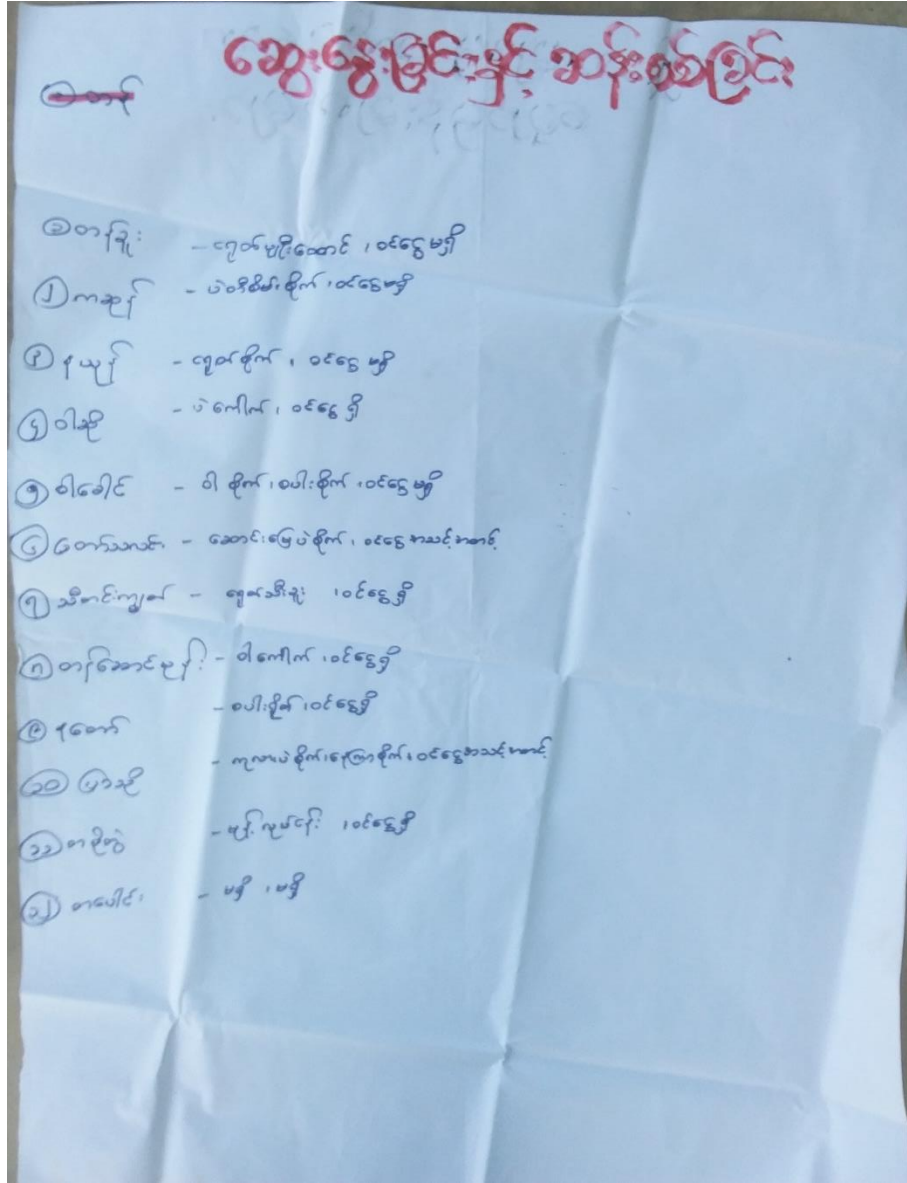 ဆွေးနွေးခြင်းနှင့် ဆန်းစစ်ခြင်း
၁ တန်ခူး - ငရုတ်မျိုးထောင် ၊ ဝင်ငွေမရှိ
၂ ကဆုန် - ပဲတီစိမ်းစိုက် ၊ ဝင်ငွေမရှိ
၃ နယုန် - ငရုတ်စိုက် ၊ ဝင်ငွေ မရှိ
၄ ဝါဆို - ပဲကောက် ၊ ဝင်ငွေ ရှိ
၅ ဝါခေါင် - ဝါ စိုက် ၊ စပါးစိုက် ၊ ဝင်ငွေမရှိ
၆ တော်သလင်း - ဆောင်းမြေပဲစိုက် ၊ ဝင်ငွေအသင့်အတင့်
၇ သီတင်းကျွတ် - ငရုတ်သီးခူး ၊ ဝင်ငွေရှိ
၈ တန်ဆောင်မုန်း - ဝါကောက် ၊ ဝင်ငွေရှိ
၉ နတော် - စပါးရိတ် ၊ ဝင်ငွေရှိ
၁၀ ပြာသို - ကုလားပဲစိုက် ၊ နေကြာစိုက် ၊ ဝင်ငွေအသင့်အတင့်
၁၁ တပို့တွဲ - ကျုန်းလုပ်ငန်း ၊ ဝင်ငွေရှိ
၁၂ တပေါင်း - မရှိ ၊ မရှိ